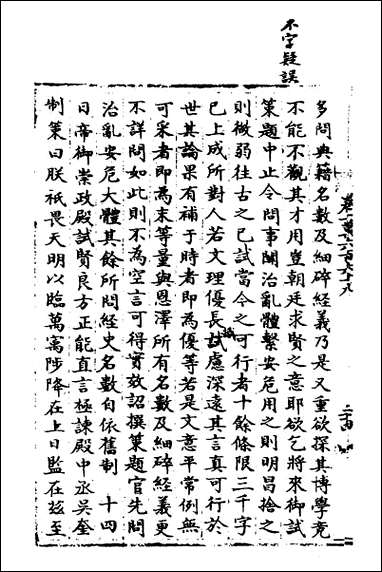 不字疑誤
多問典籍名數及細碎經義乃是又重欲探其博學竟
不能不觀其才用豈朝廷求賢之意耶欲乞將來御試
策題中止令問事關治亂體繫安危用之則明昌捨之
則微弱往古之已試當今之可行者十餘條限三千字
已上成所對人若文理優長試慮深遠其言真可行於
識
世其論果有補于時者即為優等若是文意平常例無
可采者即為末等量與恩澤所有名數及細碎經義更
不詳問如此則不為空言可得實效詔撰策題官先問
治亂安危大體其餘所問經史名數自依舊制 十四
日帝御崇政殿試賢良方正能直言極諫殿中丞吳奎
制策曰朕祇畏天明以臨萬㝢陟降在上日監在玆至